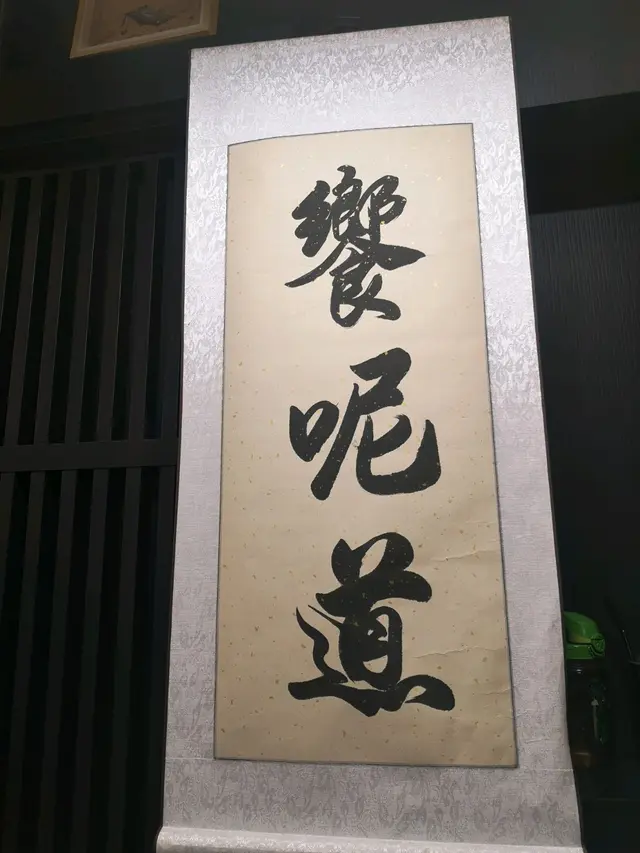 饗呢道